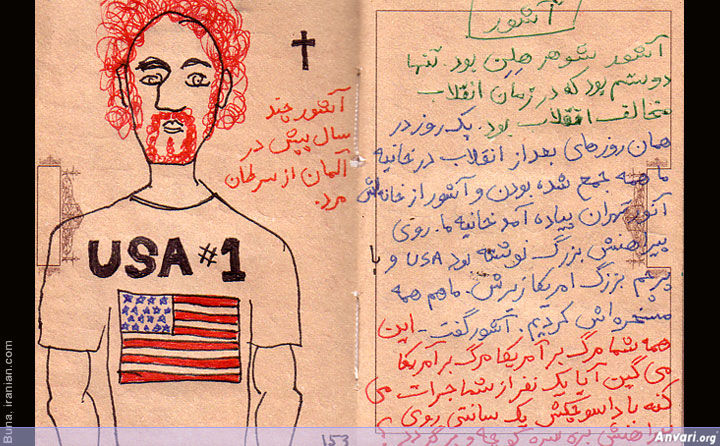 آشور
آشور شوهر هلن بود. تنها
دوستم بود که در زمان انقلاب
مخالف انقلاب بود. یک روز در
همان روزهای بعد از انقلاب در خانیه
ما همه جمع شده بودن و آشور از خانه‌اش
آنور تهران پیاده آمد خانیه ما. روی
پیراهنش بزرگ نوشته بود USA و
پرچم بزرگ امریکا زیرش. ما هم همه
مسخره‌اش کردیم. آشور گفت - این
همه شما مرگ بر آمریکا مرگ بر آمریکا
می گین آیا یک نفر از شما جرات می
کنه با داس و چکش یک سانتی روی
پیراهنش بره سر کوچه و برگرده؟
آشور چند
سال پیش در
آلمان از سرطان
مرد.
USA #1
۱۵۳
Buna. iranian.com
Anvari.org